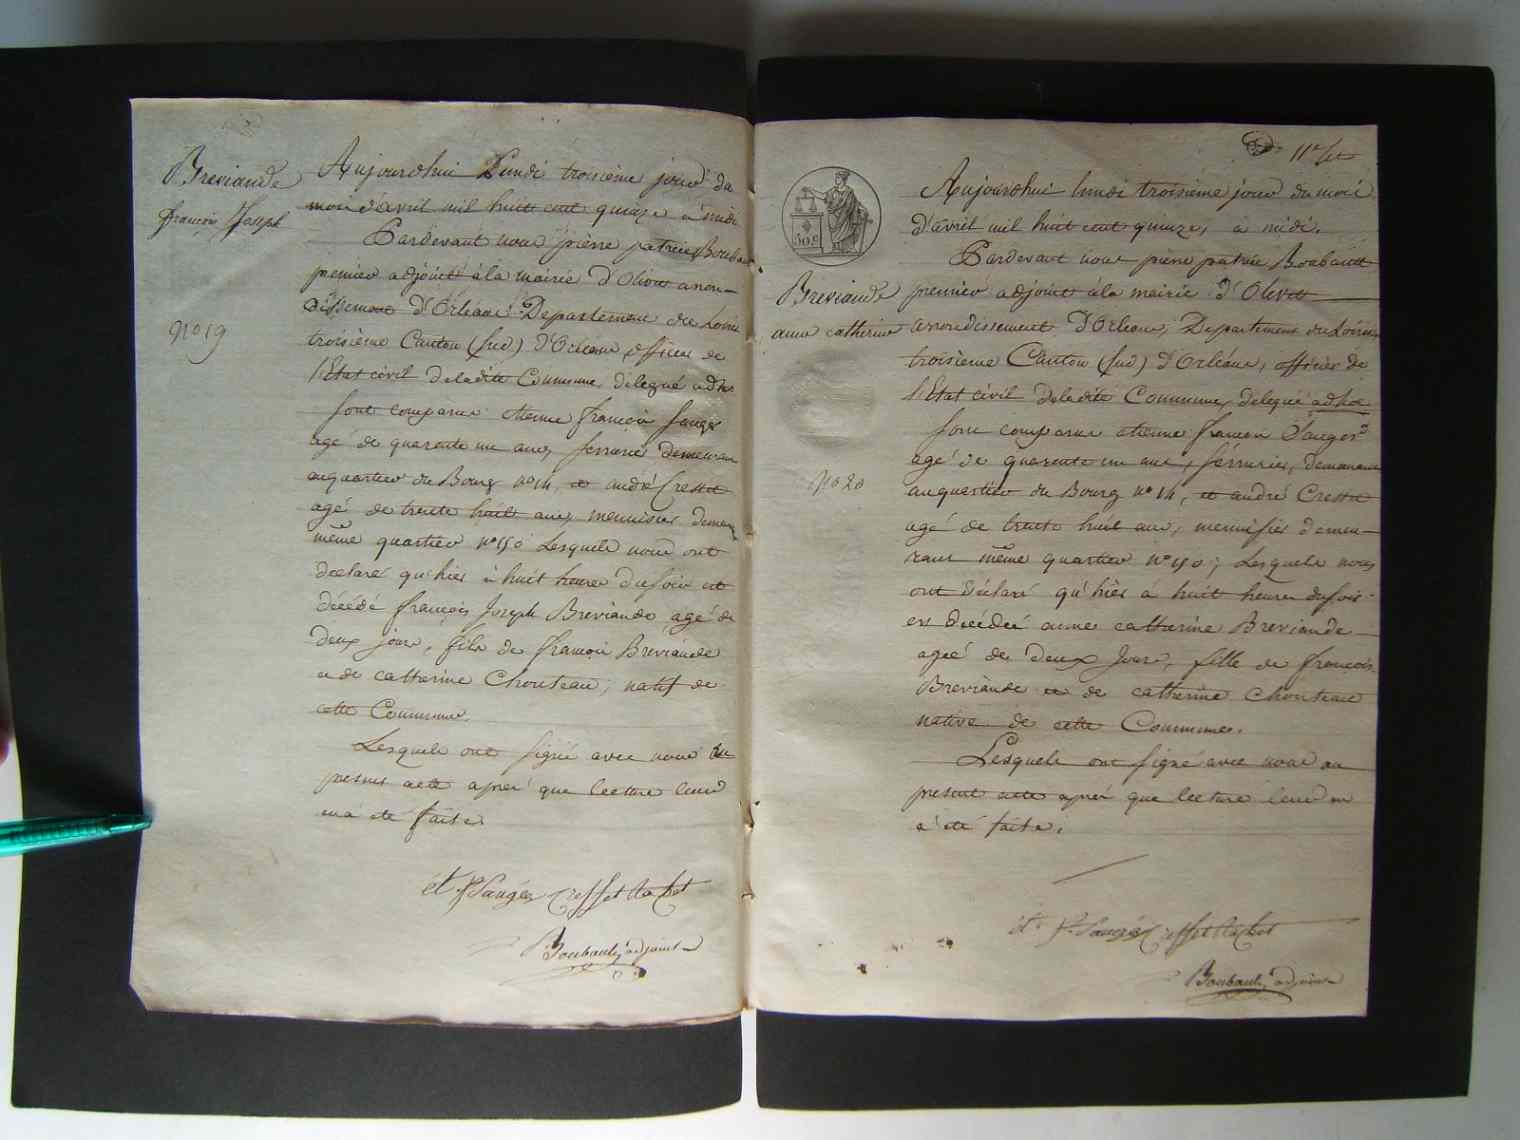 Breviande
françois Joseph
No 19
Aujourdhui Lundi troisième jour du
mois d'avril mil huit cent quinze à midi
Pardevant nous pierre patrice Boubau
premier adjoint à la mairie d'Olivet arron-
dissement d'Orléans Departement du Loiret
troisième Canton (sud) d'Orleans, officier de
l'Etat civil deladite Commune, delegué adhoc
sont comparus etienne françois Sauger
agé de quarente un ans, serrurier demeurant
auquartier du Bourg no 14, et andré Cresset
agé de trente huit ans, menuisier demeu
même quartier no 150 Lesquels nous ont
declaré qu'hier à huit heures du soir est
décédé françois Joseph Breviande agé de
deux jours, fils de françois Breviande
et de catherine Chouteau; natif de
cette Commune.
Lesquels ont signé avec nous le
present acte après que lecture leur
en a été faite
ét. f Saugér Cresset
Boubault adjoint
11e
509
Breviande
anne catherine
No 20
Aujourdhui lundi troisième jour du mois
d'avril mil huit cent quinze, à midi.
Pardevant nous pierre patrice Boubault
premier adjoint à la mairie d'Olivet
arrondissement d'Orleans, Departement du Loiret,
troisième Canton (sud) d'Orléans, officier de
l'Etat civil deladite Commune, delegué adhoc
sont comparus etienne francois Sauger
agé de quarente un ans, sérrurier, demeurant
auquartier du Bourg no 14, et andré Cresset
agé de trente huit ans, menuisier demeu-
rant même quartier no 150; Lesquels nous
ont déclaré qu'hier à huit heures du soir
est décédée anne catherine Breviande
agée de deux jours, fille de françois
Breviande et de catherine Chouteau
native de cette Commune.
Lesquels ont signé avec nous au
present acte après que lecture leur en
a été faite.
ét. f. Saugér Cresset
Boubault adjoint